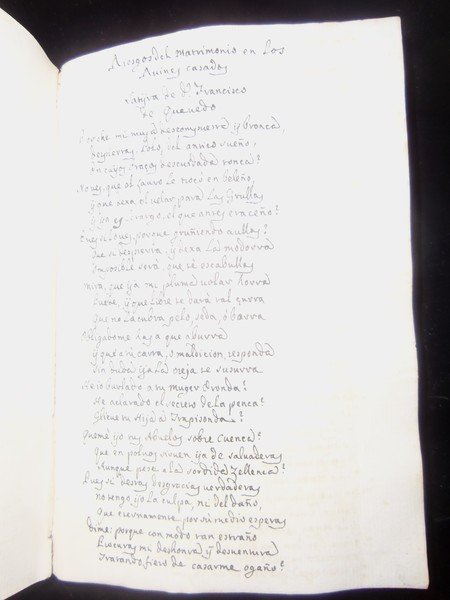 Riesgos del Matrimonio en Los
Ruines casados
Satyra de Dn. Francisco
de Quevedo
Por que mi musa descompuesta y bronca,
despiertas, Polo, del antiguo sueño,
en cuyos brazos descuidada ronca?
No ves, que el lauro le trocó en beleño,
y que dexa el velar para las Grullas
y ya es letargo, el que antes era ceño?
Pues si lo ves, porque gruñendo aullas?
Que si despierta, y dexa la modorra
imposible será, que te escabullas
mira, que ya mi pluma volar horra
puede, y que libre te dará tal zurra
que no la cubra pelo, seda, ó borra
Obligabome a que aburra
y que a tu carta, o maldicion, responda
sin duda ya la oreja te susurra
He io burlado a tu muger oronda?
He aclarado el secreto de la penca?
Llevé tu Hija á Trapisonda?
Quemé yo tus Abuelos sobre Cuenca?
Que en polvos sirven ya de salvaderas
Aunque pese a la sordida Zellenca?
Pues si destas desgracias verdaderas
no tengo yo la culpa, ni del daño,
Que eternamente por su medio esperas
dime: porque con modo tan estraño
procuras mi deshonra y desventura
tratando fiero de casarme ogaño?